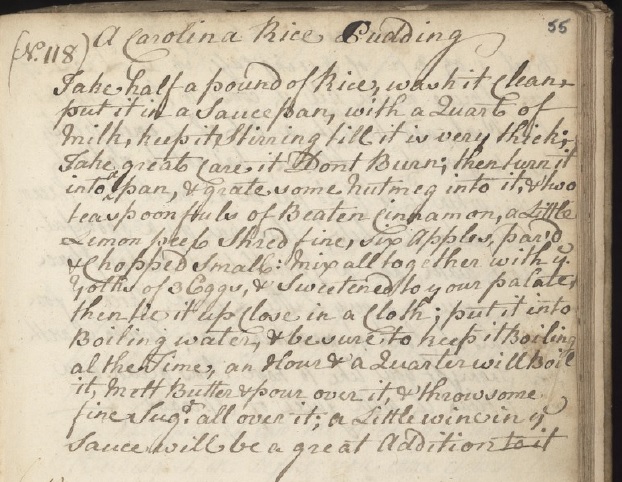 55
(No. 118) A Carolina Rice Pudding
Take half a pound of Rice, wash it Clean,
put it in a Saucepan, with a Quart of
Milk, keep it Stirring till it is very thick;
Take great Care it Dont Burn; then turn it
into a pan, & grate some Nutmeg into it, & two
teaspoonfuls of Beaten Cinnamon, a Little
Lemon peel Shred fine, Six Apples, par'd
& Chopped Small: Mix all together with ye
Yolks of 3 Eggs, & Sweetened to your palate,
then tie it up Close in a Cloth; put it into
Boiling water, & be sure to keep it Boiling
al the Time, an Hour & a Quarter will Boil
it, Melt Butter & pour over it, & throw some
fine Sugr all over it; a Little wine in ye
Sauce will be a great Addition to it